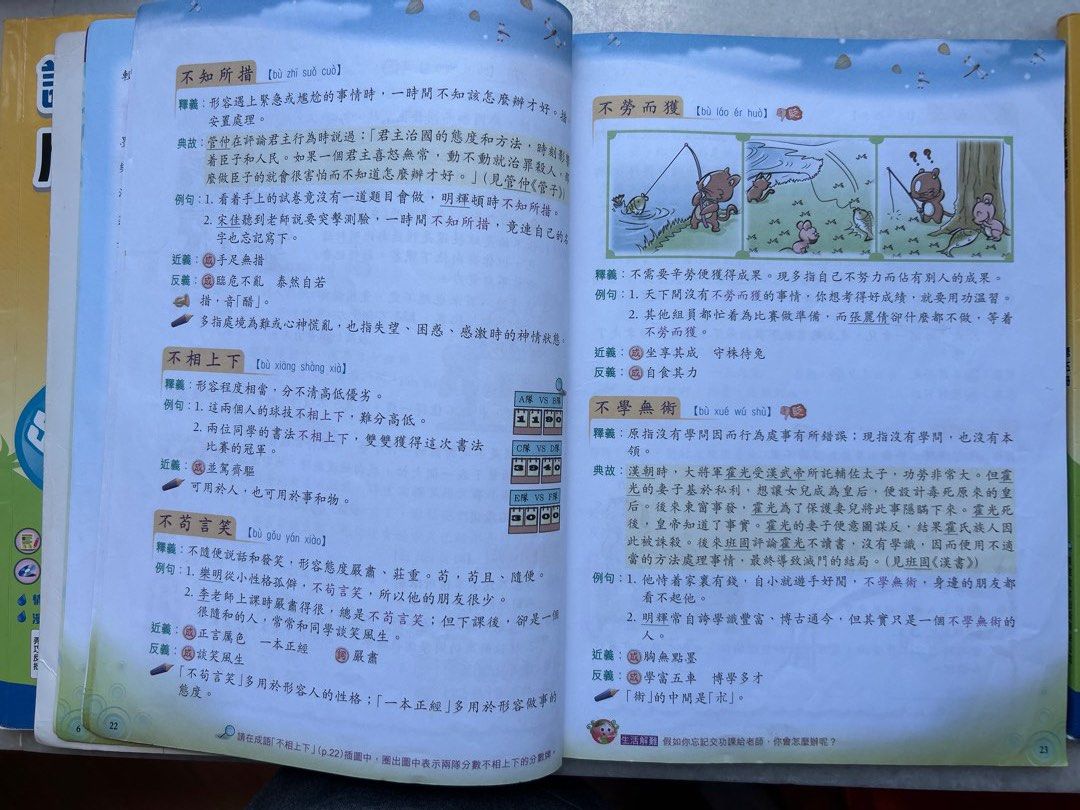 不知所措【bù zhī suǒ cuò】
釋義：形容遇上緊急或尷尬的事情時，一時間不知該怎麼辦才好。措
安置處理。
典故：管仲在評論君主行為時說過：「君主治國的態度和方法，時刻影
着臣子和人民。如果一個君主喜怒無常，動不動就治罪殺人，
麼做臣子的就會很害怕而不知道怎麼辦才好。」(見管仲《管子》)
例句：1. 看着手上的試卷竟沒有一道題目會做，明輝頓時不知所措。
2. 宋佳聽到老師說要突擊測驗，一時間不知所措，竟連自己的名
字也忘記寫下。
近義：成 手足無措
反義：成 臨危不亂 泰然自若
措，音「醋」。
多指處境為難或心神慌亂，也指失望、困惑、感激時的神情狀態。
不相上下【bù xiāng shàng xià】
釋義：形容程度相當，分不清高低優劣。
例句：1. 這兩個人的球技不相上下，難分高低。
2. 兩位同學的書法不相上下，雙雙獲得這次書法
比賽的冠軍。
近義：成 並駕齊驅
可用於人，也可用於事和物。
A隊 VS B隊
C隊 VS D隊
E隊 VS F隊
不苟言笑【bù gǒu yán xiào】
釋義：不隨便說話和發笑，形容態度嚴肅、莊重。苟，苟且、隨便。
例句：1. 樂明從小性格孤僻，不苟言笑，所以他的朋友很少。
2. 李老師上課時嚴肅得很，總是不苟言笑；但下課後，卻是一個
很隨和的人，常常和同學談笑風生。
近義：成 正言厲色 一本正經 詞 嚴肅
反義：成 談笑風生
「不苟言笑」多用於形容人的性格；「一本正經」多用於形容做事的
態度。
請在成語「不相上下」(p.22)插圖中，圈出圖中表示兩隊分數不相上下的分數牌。
6
22
不勞而獲【bù láo ér huò】貶
? ? ?
釋義：不需要辛勞便獲得成果。現多指自己不努力而佔有別人的成果。
例句：1. 天下間沒有不勞而獲的事情，你想考得好成績，就要用功溫習。
2. 其他組員都忙着為比賽做準備，而張麗倩卻什麼都不做，等着
不勞而獲。
近義：成 坐享其成 守株待兔
反義：成 自食其力
不學無術【bù xué wú shù】貶
釋義：原指沒有學問因而行為處事有所錯誤；現指沒有學問，也沒有本
領。
典故：漢朝時，大將軍霍光受漢武帝所託輔佐太子，功勞非常大。但霍
光的妻子基於私利，想讓女兒成為皇后，便設計毒死原來的皇
后。後來東窗事發，霍光為了保護妻兒將此事隱瞞下來。霍光死
後，皇帝知道了事實。霍光的妻子便意圖謀反，結果霍氏族人因
此被誅殺。後來班固評論霍光不讀書，沒有學識，因而便用不適
當的方法處理事情，最終導致滅門的結局。(見班固《漢書》)
例句：1. 他恃着家裏有錢，自小就遊手好閒，不學無術，身邊的朋友都
看不起他。
2. 明輝常自誇學識豐富、博古通今，但其實只是一個不學無術的
人。
近義：成 胸無點墨
反義：成 學富五車 博學多才
「術」的中間是「朮」。
生活解難 假如你忘記交功課給老師，你會怎麼辦呢？
23